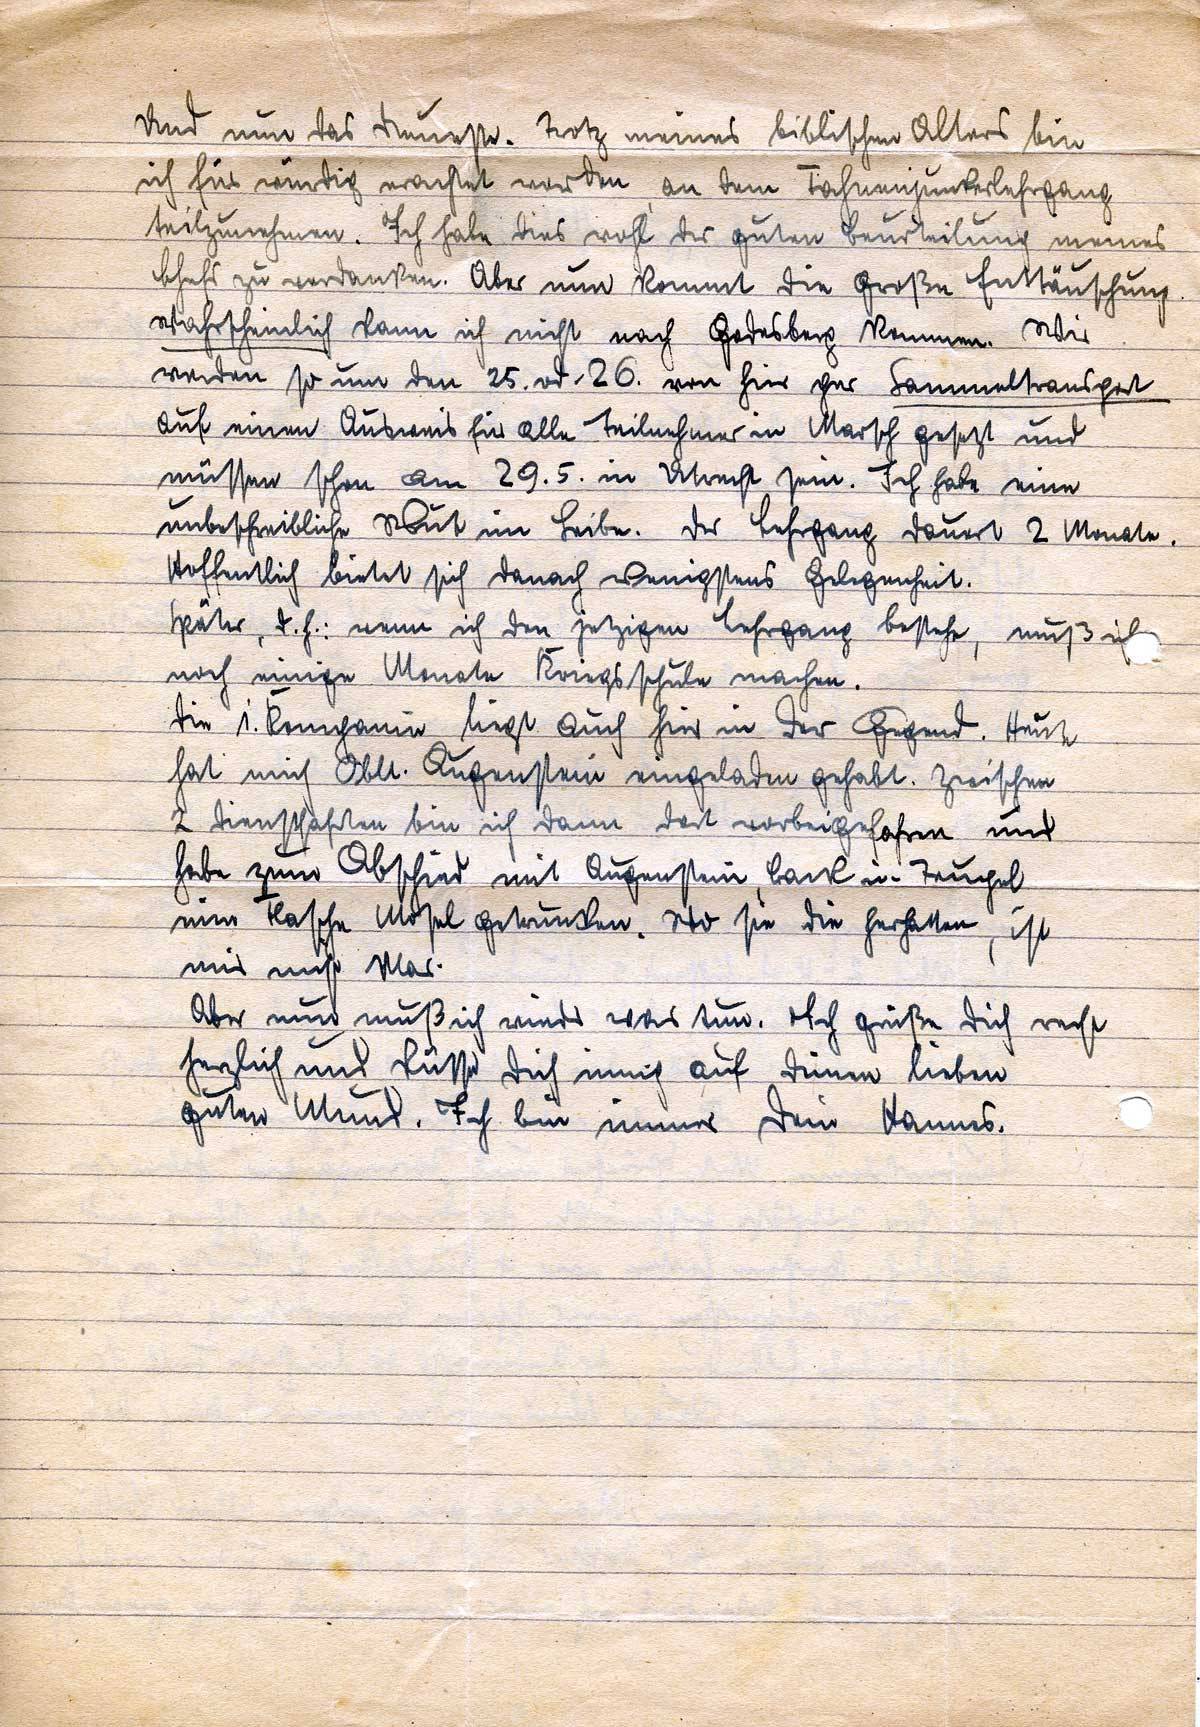 Und nun das Neueste. Trotz meines biblischen Alters bin
ich für würdig erachtet worden, an dem Fahnenjunkerlehrgang
teilzunehmen. Ich habe dies wohl der guten Beurteilung meines
Chefs zu verdanken. Aber nun kommt die große Enttäuschung.
Wahrscheinlich kann ich nicht nach Godesberg kommen. Wir
werden so um den 25. od. 26. von hier per Sammeltransport
auf einen Ausweis für alle Teilnehmer in Marsch gesetzt und
müssen schon am 29.5. in Utrecht sein. Ich habe eine
unbeschreibliche Wut im Leibe. Der Lehrgang dauert 2 Monate.
Hoffentlich bietet sich danach wenigstens Gelegenheit.
Später, d.h.: wenn ich den jetzigen Lehrgang bestehe, muß ich
noch einige Monate Kriegsschule machen.
Die 1. Kompanie liegt auch hier in der Gegend. Heute
hat mich Oblt. Augenstein eingeladen gehabt. Zwischen
2 Dienstfahrten bin ich dann dort vorbeigefahren und
habe zum Abschied mit Augenstein, Back u.
eine Flasche Mosel getrunken. Wo sie die herhatten, ist
mir nicht klar.
Aber nun muß ich wieder was tun. Ich grüße Dich recht
herzlich und küsse Dich innig auf Deinen lieben
guten Mund. Ich bin immer Dein Hannes.